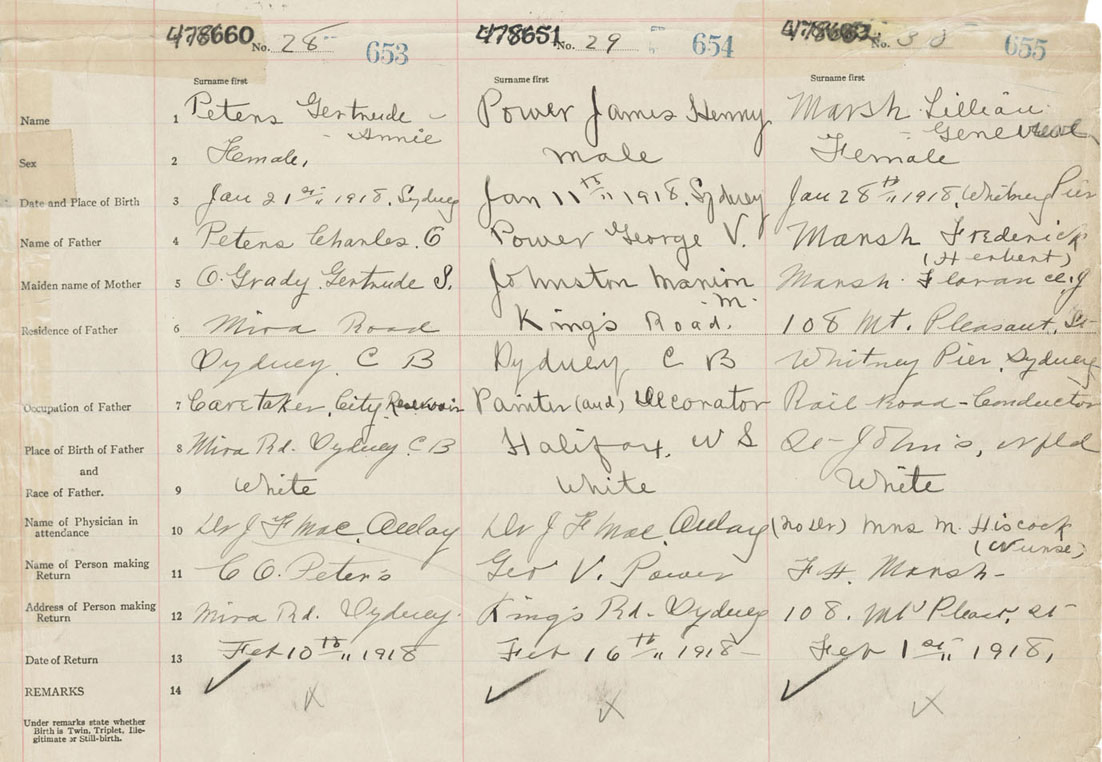 478660 No. 28 653 478651 No. 29 654 No. 30 655
Surname first Surname first Surname first
Name 1 Peters Gertrude - Power James Henry Marsh Lillian
- Annie - Genevieve
Sex 2 Female, male Female
Date and Place of Birth 3 Jan 21st,, 1918, Sydney Jan 11th,, 1918, Sydney Jan 28th,, 1918, Whitney Pier
Name of Father 4 Peters Charles. O Power George V. Marsh Frederick
(Herbert)
Maiden name of Mother 5 O. Grady, Gertrude S. Johnston Marion Marsh. Florance. J
- M.
Residence of Father 6 Mira Road King's Road. 108 Mt. Pleasant, St
Sydney. C B Sydney C B Whitney Pier, Sydney
Occupation of Father 7 Caretaker, City Reservoir Painter (and) Decorator Rail Road-Conductor
Place of Birth of Father 8 Mira Rd. Sydney. C B Halifax, N S St-John's, Nfld
and
Race of Father. 9 White White White
Name of Physician in
attendance 10 Dr J F Mac. Aulay Dr J F Mac. Aulay (No Dr) Mrs M. Hiscock
(Nurse)
Name of Person making
Return 11 C O. Peter's Geo V. Power F H. Marsh-
Address of Person making
Return 12 Mira Rd. Sydney. King's Rd- Sydney 108. Mt Pleas, st
Date of Return 13 Feb 10th,, 1918 Feb 16th,, 1918- Feb 1st,, 1918,
REMARKS 14 ✓ X ✓ X ✓ X
Under remarks state whether
Birth is Twin, Triplet, Ille-
gitimate or Still-birth.